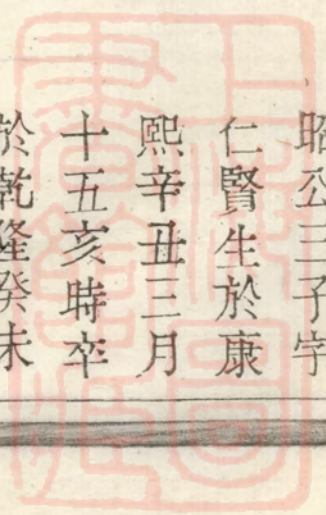 昭公三子字
仁賢生於康
熙辛丑三月
十五亥時卒
於乾隆癸未